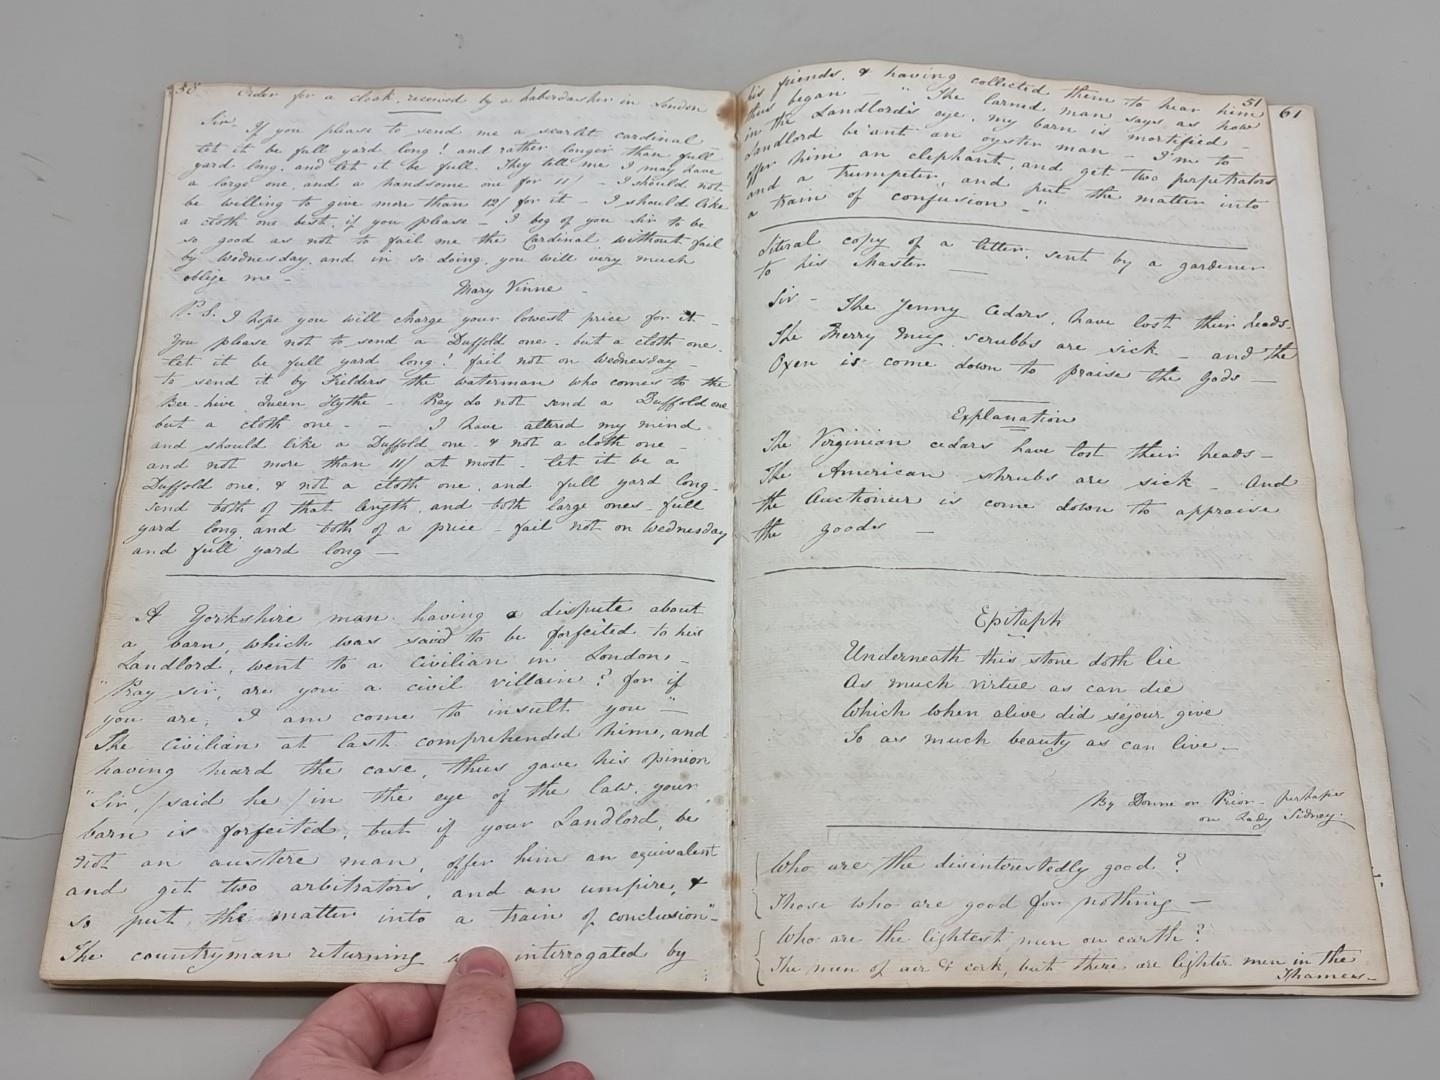 58
Order for a cloak, received by a haberdasher in London
Sir. If you please to send me a scarlet cardinal -
let it be full yard long! and rather longer than full
yard long, and let it be full. They tell me I may have
a large one, and a handsome one for 11/ - I should not
be willing to give more than 12/ for it - I should like
a cloth one best, if you please - I beg of you Sir to be
so good as not to fail me the Cardinal without fail
by Wednesday, and in so doing, you will very much
oblige me -
Mary Vinne -
P.S. I hope you will charge your lowest price for it -
You please not to send a Duffold one - but a cloth one.
let it be full yard long! fail not on Wednesday -
to send it by Fielders the waterman who comes to the
Bee-hive Queen Hythe - Pray do not send a Duffold one
but a cloth one - - I have altered my mind
and should like a Duffold one - & not a cloth one -
and not more than 11/ at most - let it be a
Duffold one, & not a cloth one, and full yard long -
send both of that length, and both large ones - full
yard long, and both of a price - fail not on Wednesday
and full yard long -
A Yorkshire man having a dispute about
a barn, which was said to be forfeited to his
Landlord, went to a civilian in London, -
"Pray Sir, are you a civil villain? for if
you are, I am come to insult you" -
The civilian at last comprehended him, and
having heard the case, thus gave his opinion
"Sir, /said he/ in the eye of the law, your
barn is forfeited, but if your Landlord, be
not an austere man, offer him an equivalent
and get two arbitrators, and an umpire, &
so put the matter into a train of conclusion" -
The countryman returning interrogated by
51
61
his friends, & having collected them to hear him
thus began - "The larned man says, as how
in the Landlord's eye, my barn is mortified -
Landlord be'ant an oyster man - I'm to
offer him an elephant, and get two perpetrators
and a trumpeter, and put the matter into
a train of confusion -"
Literal copy of a letter, sent by a gardener
to his Master -
Sir - The Jenny Cedars, have lost their heads -
The Merry Mug scrubbs are sick - and the
Oxen is come down to praise the Gods -
Explanation
The Virginian cedars have lost their heads -
The American shrubs are sick - And
the Auctioneer is come down to appraise
the goods -
Epitaph
Underneath this stone doth lie
As much virtue as can die
Which when alive did sejour give
To as much beauty as can live -
By Donne or Prior - perhaps
on Lady Sidney -
Who are the disinterestedly good?
Those who are good for nothing -
Who are the lightest men on earth?
The men of air & cork, but there are lighter men in the
Thames -